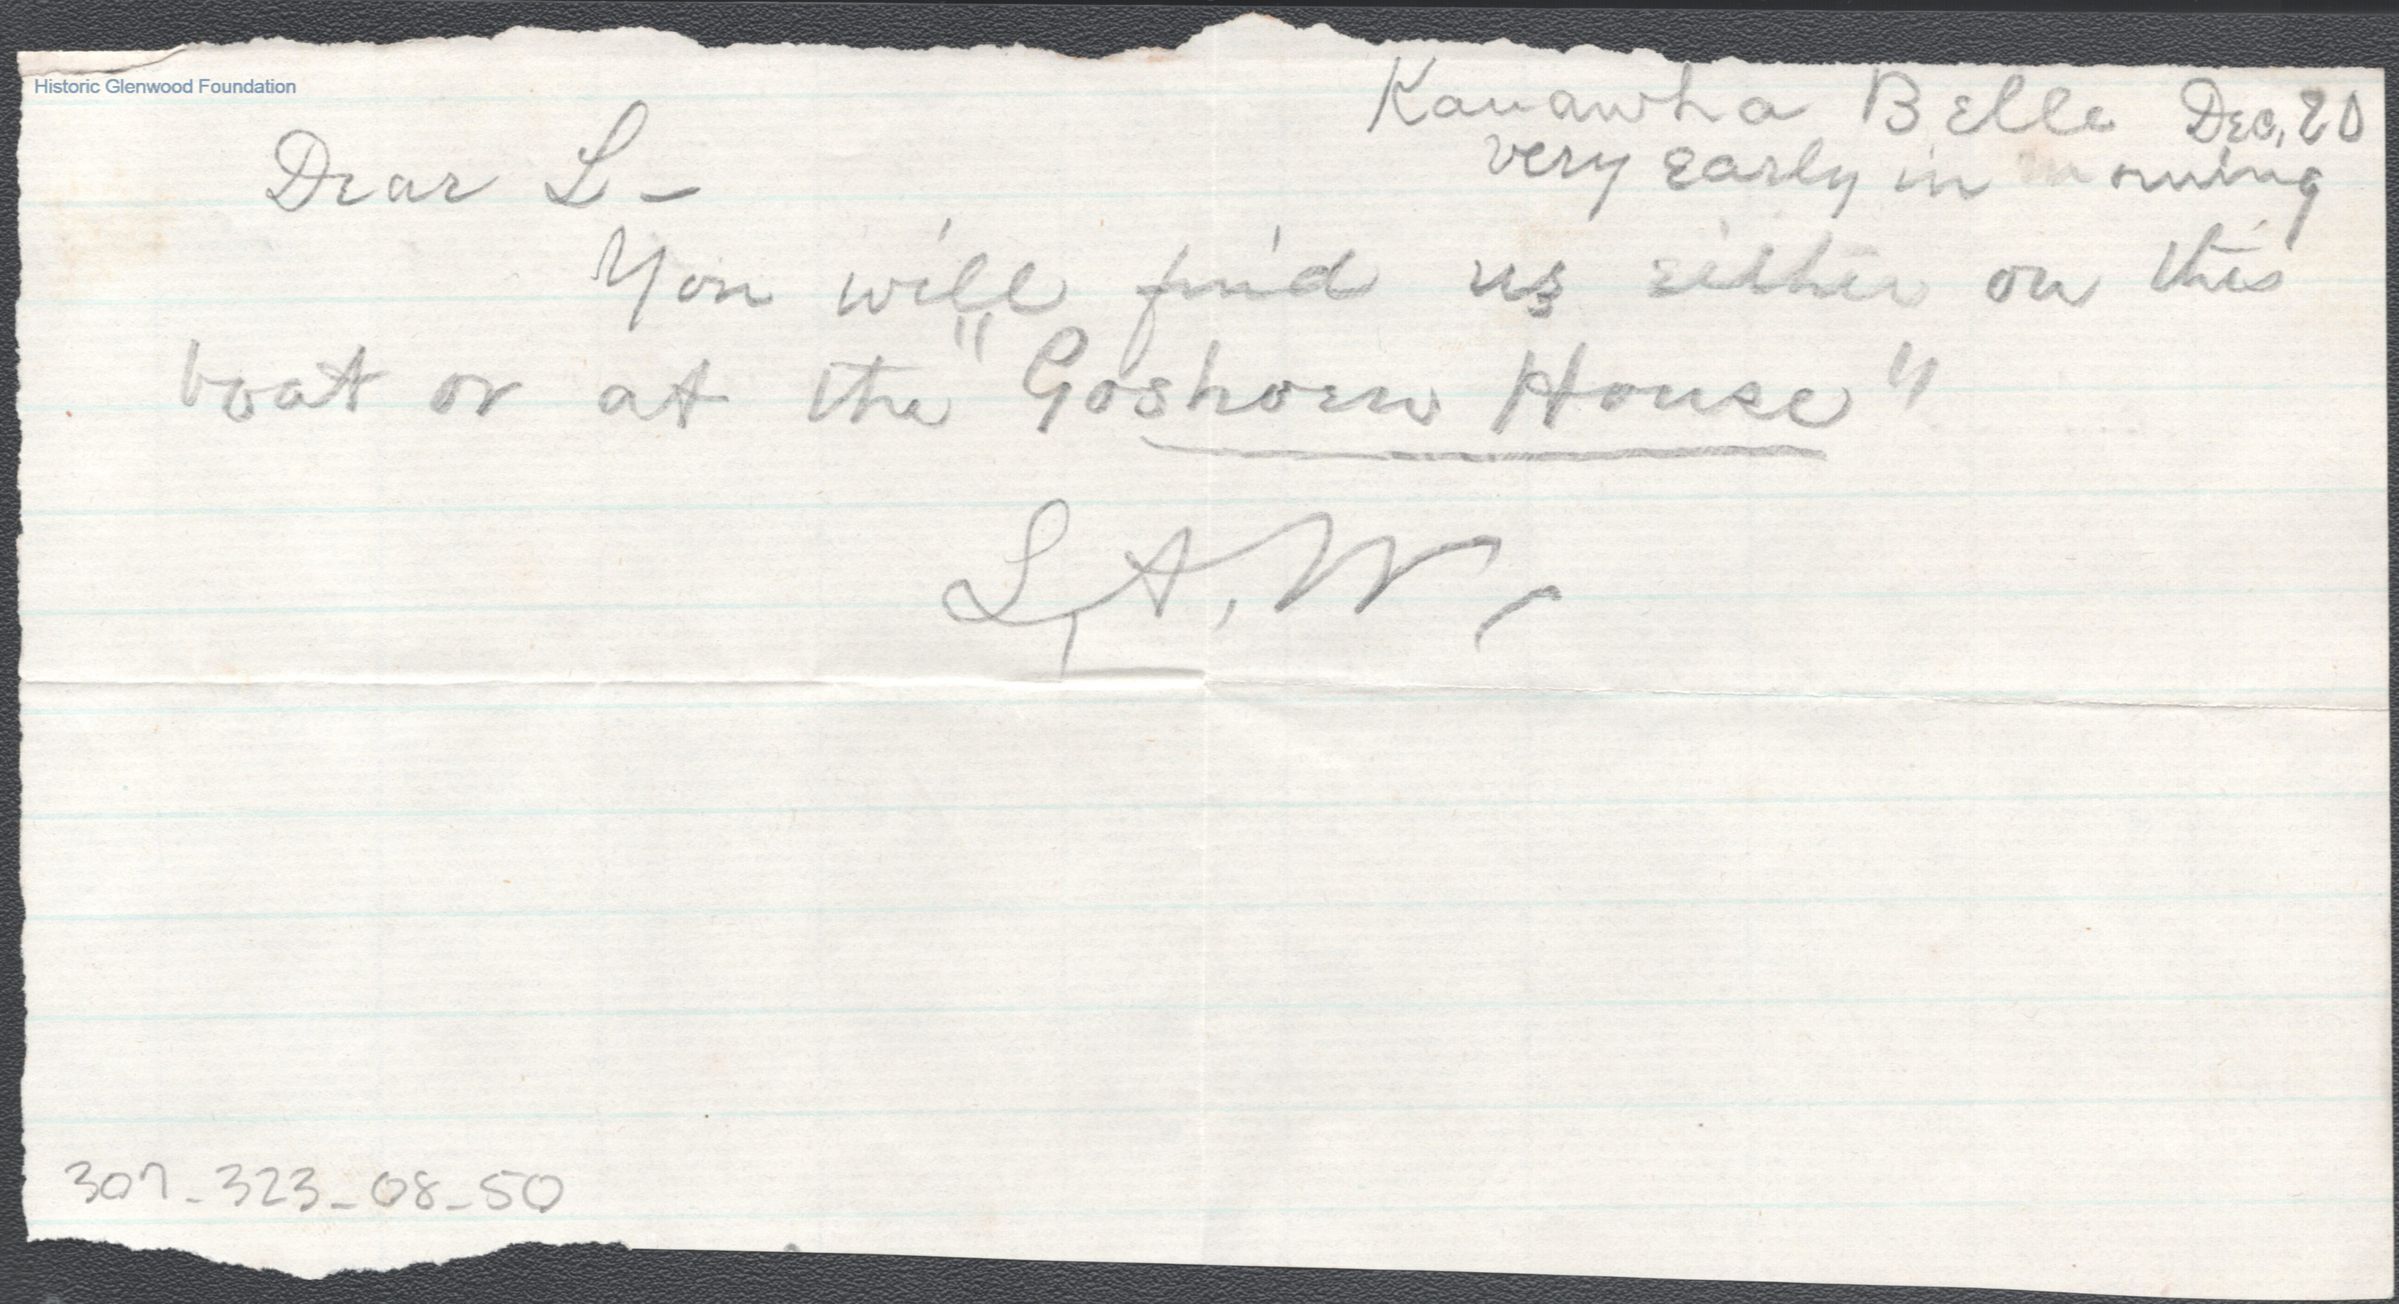 Historic Glenwood Foundation
Kanawha Belle Dec. 20
very early in morning
Dear L –
You will find us either on this
boat or at the "Goshorn House"
L, A, W,
307-323-08-50